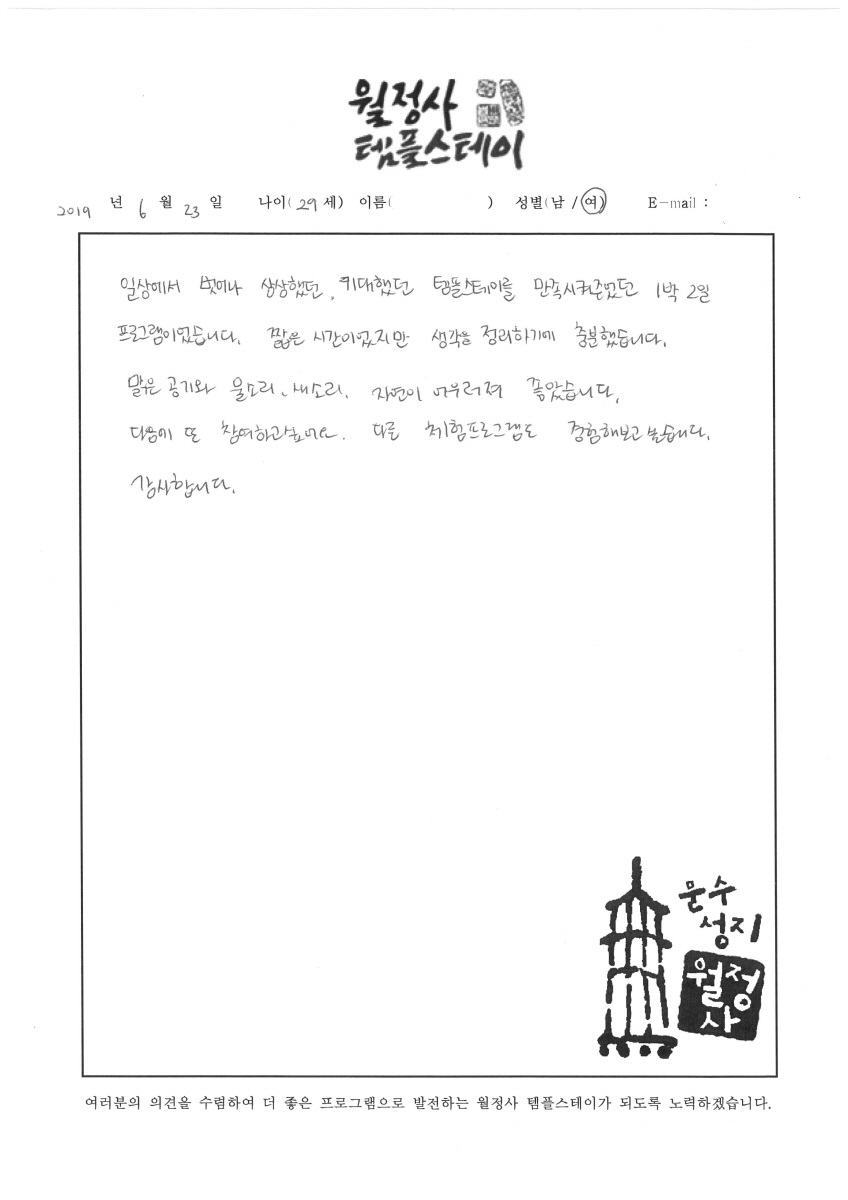 월정사
템플스테이
2019 년 6 월 23 일 나이(29 세) 이름( ) 성별(남 / 여) E-mail :
일상에서 벗어나 상상했던, 기대했던 템플스테이를 만족시켜준었던 1박 2일
프로그램이었습니다. 짧은 시간이었지만 생각을 정리하기에 충분했습니다.
맑은 공기와 물소리, 새소리, 자연이 어우러져 좋았습니다.
다음에 또 참여하고싶어요. 다른 체험프로그램도 경험해보고 싶습니다.
감사합니다.
문수
성지
월정
사
여러분의 의견을 수렴하여 더 좋은 프로그램으로 발전하는 월정사 템플스테이가 되도록 노력하겠습니다.